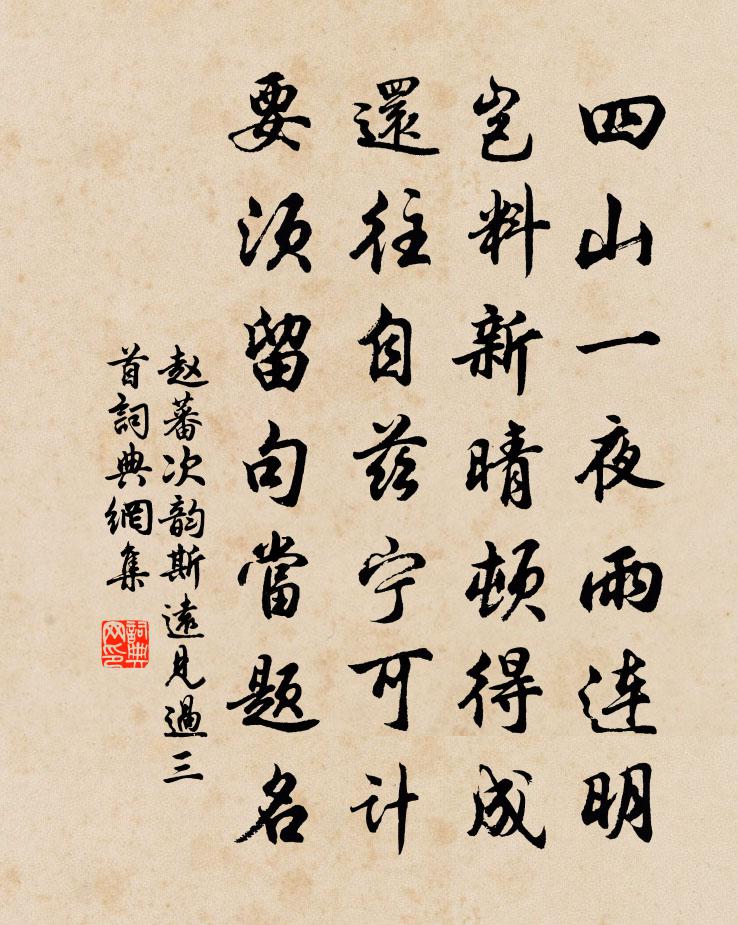 四山一夜雨连明
岂料新晴顿得成
還往自兹宁可计
要须留句當题名
赵蕃次韵斯遠见過三
首詞典網集
詞典
网印